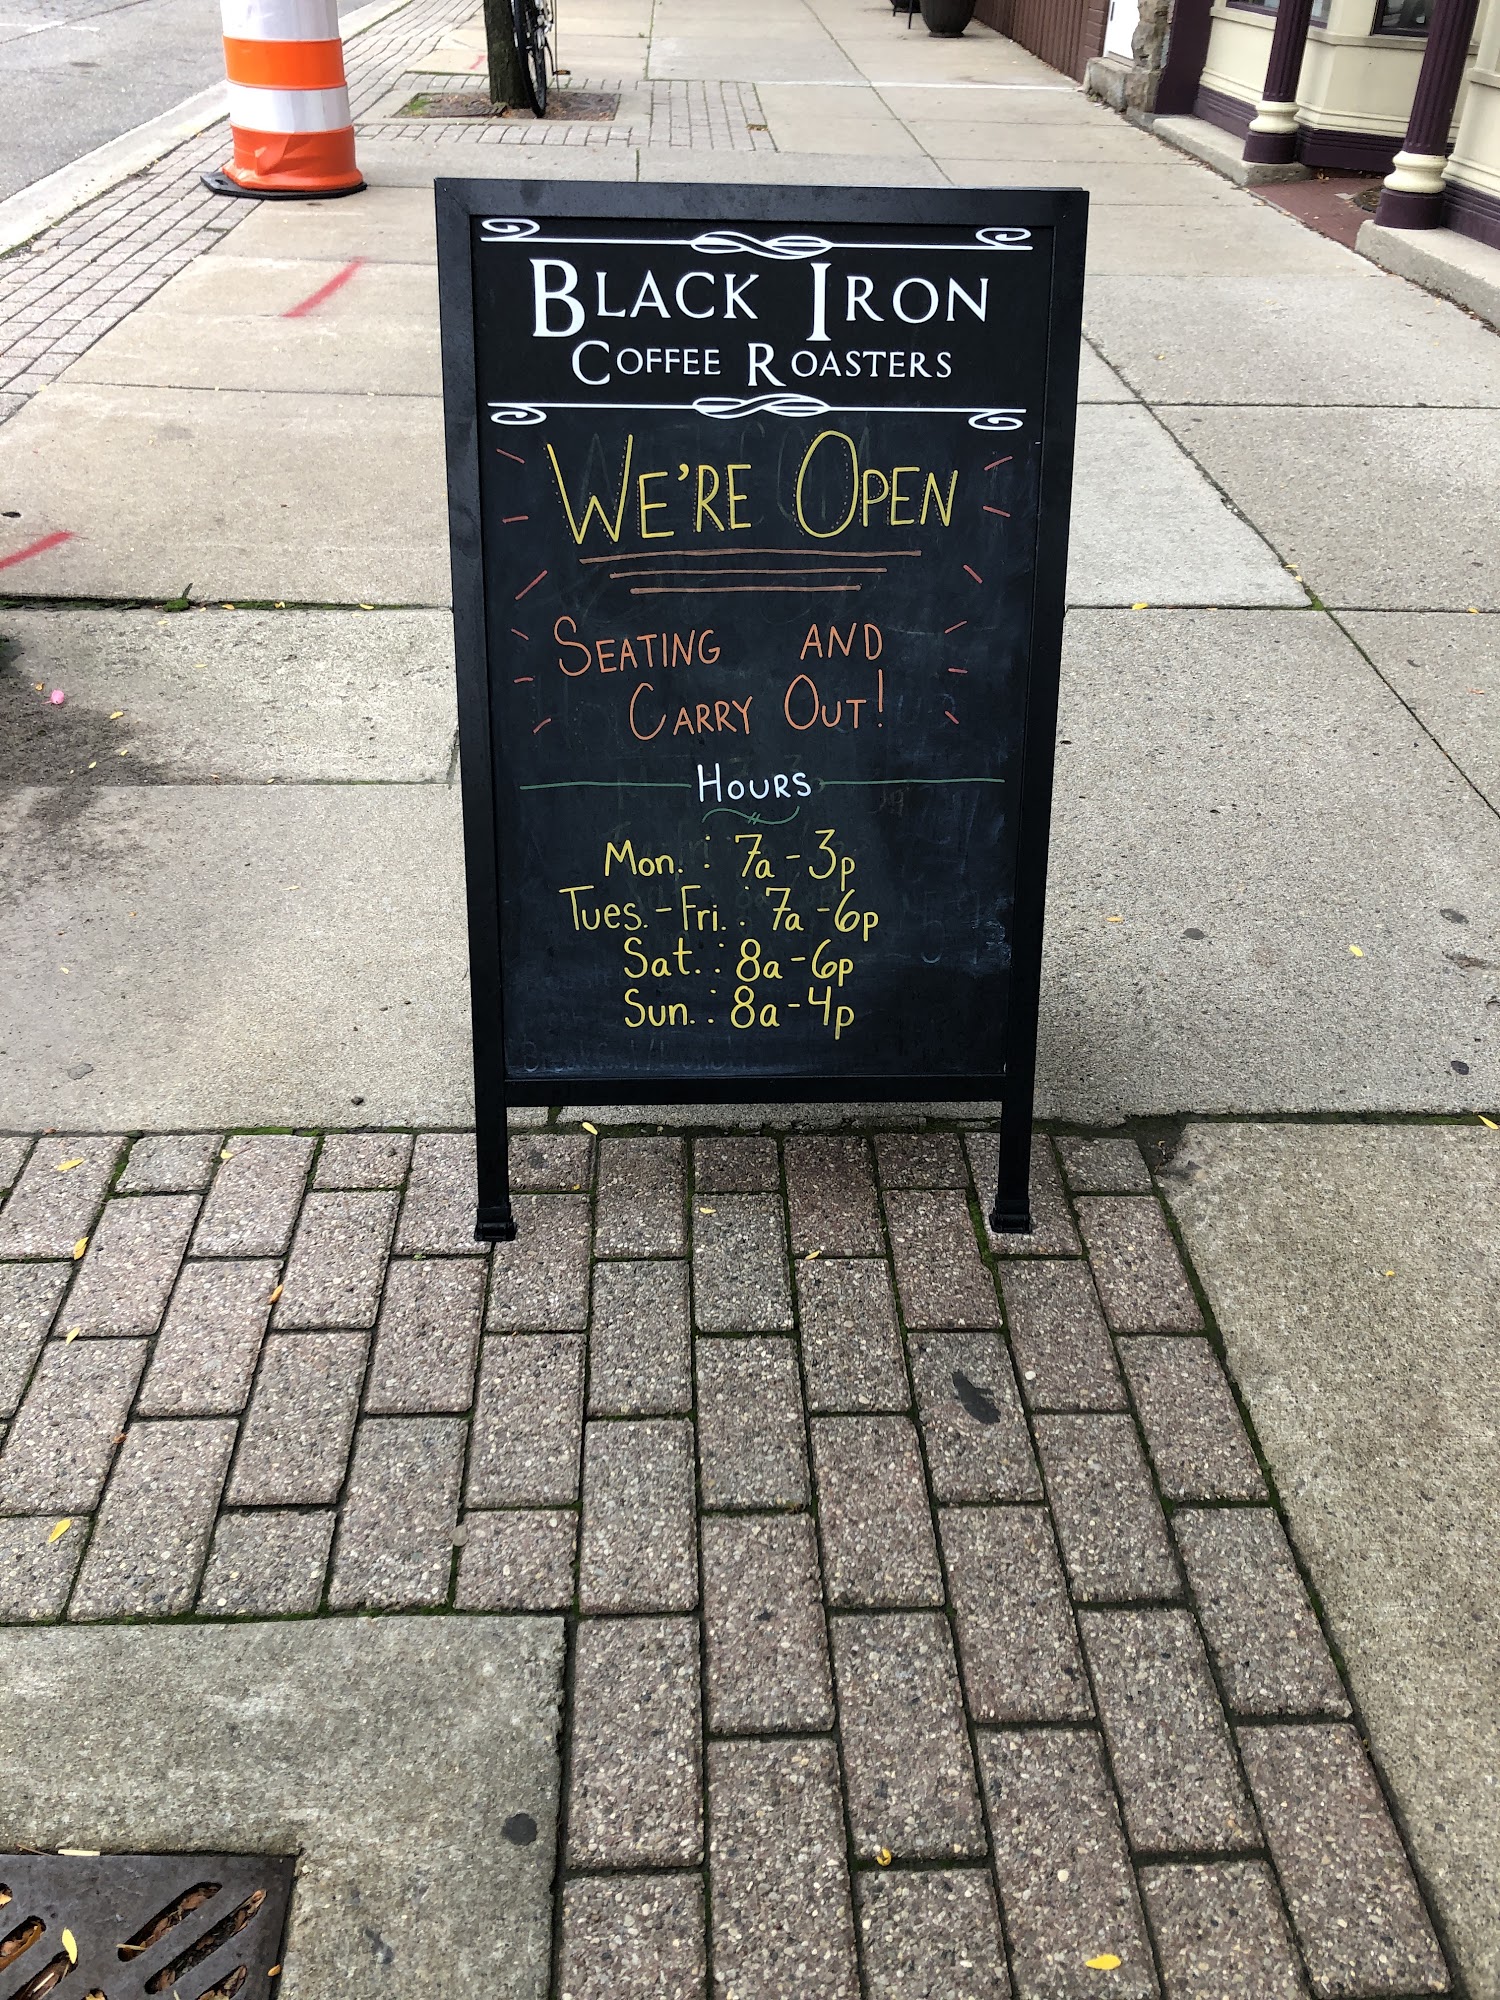 Black Iron
Coffee Roasters
We're Open
Seating and
Carry Out!
Hours
Mon. : 7a-3p
Tues.-Fri. : 7a-6p
Sat. : 8a-6p
Sun. : 8a-4p